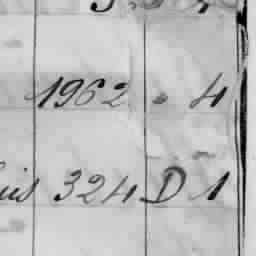 1962 . 4
uis 324 D 1